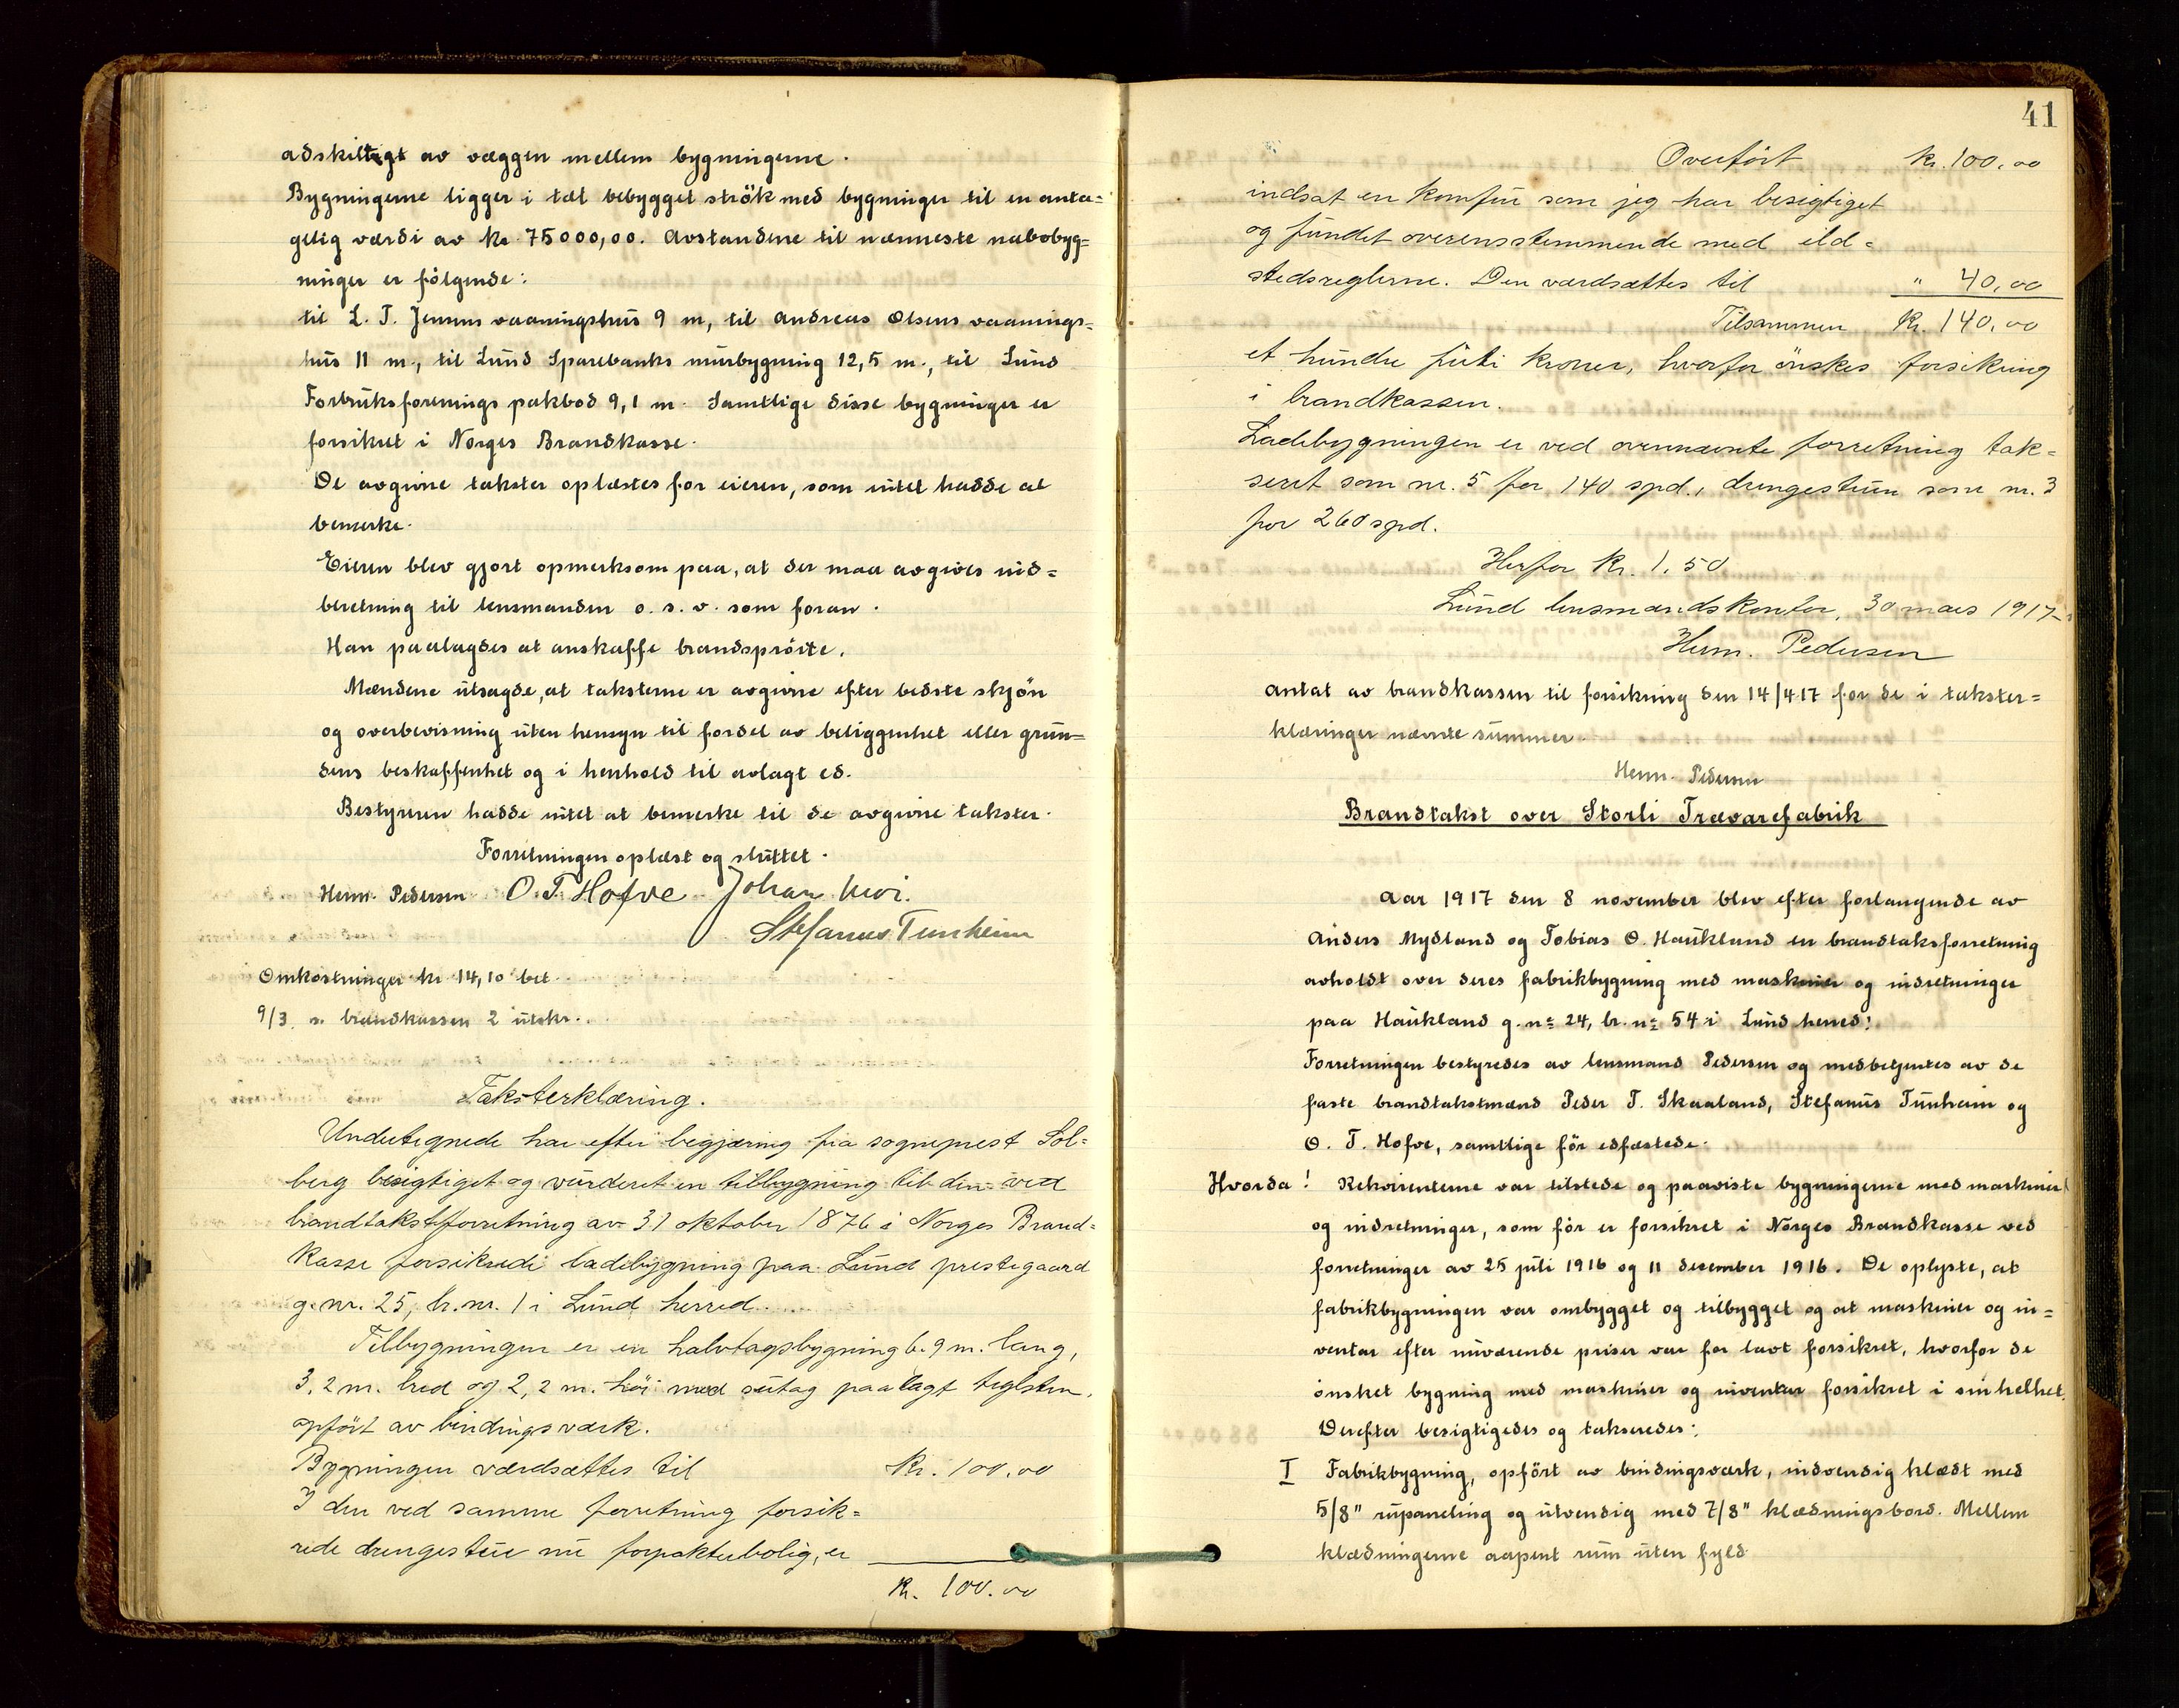 adskilligt av væggen mellem bygningerne.
Bygningerne ligger i tæt bebygget strök med bygninger til en anta=
gelig værdi av kr 75000,00. Avstandene til nærmeste nabobyg=
ninger er følgende:
til L. T. Jensens vaaningshus 9 m, til Andreas Olsens vaanings=
hus 11 m., til Lund Sparebanks murbygning 12,5 m., til Lund
Forbruksforenings pakbod 9,1 m. Samtlige disse bygninger er
forsikret i Norges Brandkasse.
De avgivne takster oplæstes for eieren, som intet hadde at
bemerke.
Eieren blev gjort opmerksom paa, at der maa avgives ind=
beretning til lensmanden o. s. v. som foran.
Han paalagdes at anskaffe brandsprøite.
Mændene utsagde, at taksterne er avgivne efter bedste skjøn
og overbevisning uten hensyn til fordel av beliggenhet eller grun=
dens beskaffenhet og i henhold til avlagt ed.
Bestyreren hadde intet at bemerke til de avgivne takster.
Forretningen oplæst og sluttet.
Herm. Pedersen O. T. Hofve Johan Moi.
Stefanus Tunheim
Omkostninger kr 14,10 bet.
9/3 s. brandkassen 2 utskr.
Taksterklæring.
Undertegnede har efter begjæring fra sogneprest Sol=
berg besigtiget og vurderet en tilbygning til den ved
brandtakstforretning av 31 oktober 1876 i Norges Brand=
kasse forsikrede ladebygning paa Lund prestegaard
g.nr. 25, br.nr. 1 i Lund herred.
Tilbygningen er en halvtagsbygning 6.9 m. lang,
3,2 m. bred og 2,2 m. høi med sutag paalagt teglsten,
opført av bindingsverk.
Bygningen værdsættes til Kr. 100.00
I den ved samme forretning forsik=
rede drengestue nu forpakterbolig, er
Kr. 100.00
41
Overført Kr. 100,00
indsat en komfur som jeg har besigtiget
og fundet overensstemmende med ild=
stedsreglerne. Den værdsættes til " 40,00
Tilsammen Kr. 140,00
et hundre firti kroner, hvorfor ønskes forsikring
i brandkassen.
Ladebygningen er ved ovennævnte forretning tak=
seret som nr. 5 for 140 spd., drengestuen som nr. 3
for 260 spd.
Herfor Kr. 1.50
Lund lensmandskontor, 30 mars 1917
Herm. Pedersen
Antat av brandkassen til forsikring den 14/4 17 for de i takster=
klæringer nævnte summer.
Herm. Pedersen
Brandtakst over Storli Trævarefabrik
Aar 1917 den 8 november blev efter forlangende av
Anders Mydland og Tobias O. Haukland en brandtaksforretning
avholdt over deres fabrikbygning med maskiner og indretninger
paa Haukland g. no 24, br. no 54 i Lund herred:
Forretningen bestyredes av lensmand Pedersen og medbetjentes av de
faste brandtakstmænd Peder T. Skaaland, Stefanus Tunheim og
O. T. Hofve, samtlige før edfæstede.
Hvorda! Rekvirenterne var tilstede og paaviste bygningerne med maskiner
og indretninger, som før er forsikret i Norges Brandkasse ved
forretninger av 25 juli 1916 og 11 desember 1916. De oplyste, at
fabrikbygningen var ombygget og tilbygget og at maskiner og in=
ventar efter nuværende priser var for lavt forsikret, hvorfor de
ønsket bygning med maskiner og inventar forsikret i sin helhet.
Derefter besigtigedes og takseredes:
I Fabrikbygning, opført av bindingsverk, indvendig klædt med
5/8" rupaneling og utvendig med 7/8" klædningsbord. Mellem
klædningerne aapent rum uten fyld